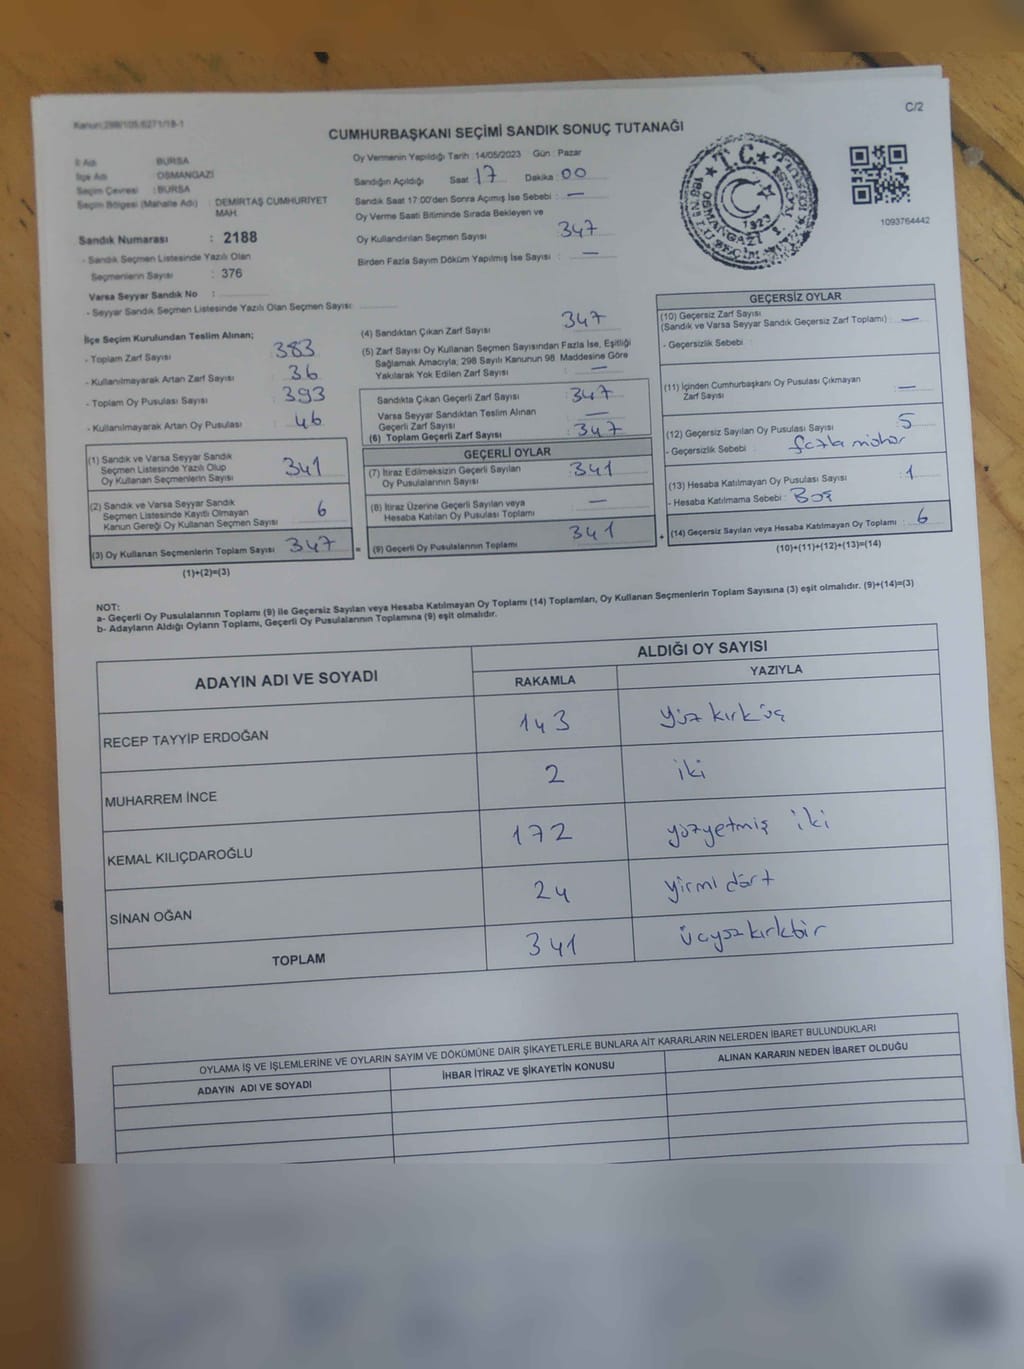 C/2
Kanun:298/105:6271/18-1
CUMHURBAŞKANI SEÇİMİ SANDIK SONUÇ TUTANAĞI
İl Adı : BURSA
İlçe Adı : OSMANGAZİ
Seçim Çevresi : BURSA
Seçim Bölgesi (Mahalle Adı) : DEMİRTAŞ CUMHURİYET
MAH.
Sandık Numarası : 2188
- Sandık Seçmen Listesinde Yazılı Olan
Seçmenlerin Sayısı : 376
Varsa Seyyar Sandık No :
- Seyyar Sandık Seçmen Listesinde Yazılı Olan Seçmen Sayısı:
Oy Vermenin Yapıldığı Tarih :14/05/2023 Gün : Pazar
Sandığın Açıldığı Saat 17 Dakika 00
Sandık Saat 17:00'den Sonra Açımış İse Sebebi : —
Oy Verme Saati Bitiminde Sırada Bekleyen ve
Oy Kullandırılan Seçmen Sayısı 347
Birden Fazla Sayım Döküm Yapılmış İse Sayısı : —
T.C.
OSMANGAZİ
1923
1093764442
İlçe Seçim Kurulundan Teslim Alınan;
- Toplam Zarf Sayısı 383
- Kullanılmayarak Artan Zarf Sayısı 36
- Toplam Oy Pusulası Sayısı 393
- Kullanılmayarak Artan Oy Pusulası 46
(1) Sandık ve Varsa Seyyar Sandık
Seçmen Listesinde Yazılı Olup
Oy Kullanan Seçmenlerin Sayısı 341
(2) Sandık ve Varsa Seyyar Sandık
Seçmen Listesinde Kayıtlı Olmayan
Kanun Gereği Oy Kullanan Seçmen Sayısı 6
(3) Oy Kullanan Seçmenlerin Toplam Sayısı 347 =
(1)+(2)=(3)
(4) Sandıktan Çıkan Zarf Sayısı 347
(5) Zarf Sayısı Oy Kullanan Seçmen Sayısından Fazla İse, Eşitliği
Sağlamak Amacıyla; 298 Sayılı Kanunun 98. Maddesine Göre
Yakılarak Yok Edilen Zarf Sayısı : —
Sandıkta Çıkan Geçerli Zarf Sayısı : 347
Varsa Seyyar Sandıktan Teslim Alınan
Geçerli Zarf Sayısı : —
(6) Toplam Geçerli Zarf Sayısı : 347
GEÇERLİ OYLAR
(7) İtiraz Edilmeksizin Geçerli Sayılan
Oy Pusulalarının Sayısı 341
(8) İtiraz Üzerine Geçerli Sayılan veya
Hesaba Katılan Oy Pusulası Toplamı —
(9) Geçerli Oy Pusulalarının Toplamı 341 +
GEÇERSİZ OYLAR
(10) Geçersiz Zarf Sayısı
(Sandık ve Varsa Seyyar Sandık Geçersiz Zarf Toplamı) : —
- Geçersizlik Sebebi :
(11) İçinden Cumhurbaşkanı Oy Pusulası Çıkmayan
Zarf Sayısı : —
(12) Geçersiz Sayılan Oy Pusulası Sayısı : 5
- Geçersizlik Sebebi : fazla mühür
(13) Hesaba Katılmayan Oy Pusulası Sayısı : 1
- Hesaba Katılmama Sebebi : Boş
(14) Geçersiz Sayılan veya Hesaba Katılmayan Oy Toplamı : 6
(10)+(11)+(12)+(13)=(14)
NOT:
a- Geçerli Oy Pusulalarının Toplamı (9) ile Geçersiz Sayılan veya Hesaba Katılmayan Oy Toplamı (14) Toplamları, Oy Kullanan Seçmenlerin Toplam Sayısına (3) eşit olmalıdır. (9)+(14)=(3)
b- Adayların Aldığı Oyların Toplamı, Geçerli Oy Pusulalarının Toplamına (9) eşit olmalıdır.
ADAYIN ADI VE SOYADI
ALDIĞI OY SAYISI
RAKAMLA YAZIYLA
RECEP TAYYİP ERDOĞAN 143 yüz kırküç
MUHARREM İNCE 2 iki
KEMAL KILIÇDAROĞLU 172 yüzyetmiş iki
SİNAN OĞAN 24 yirmi dört
TOPLAM 341 üçyüzkırkbir
OYLAMA İŞ VE İŞLEMLERİNE VE OYLARIN SAYIM VE DÖKÜMÜNE DAİR ŞİKAYETLERLE BUNLARA AİT KARARLARIN NELERDEN İBARET BULUNDUKLARI
ADAYIN ADI VE SOYADI İHBAR İTİRAZ VE ŞİKAYETİN KONUSU ALINAN KARARIN NEDEN İBARET OLDUĞU